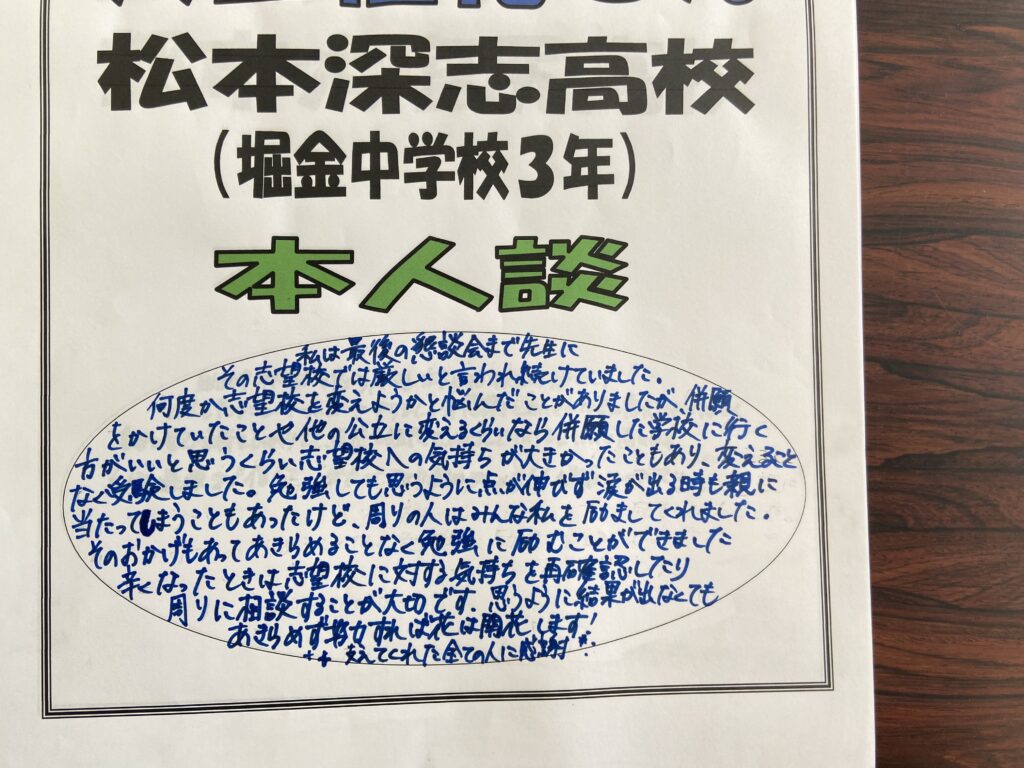 松本深志高校
(堀金中学校3年)
本人談
私は最後の懇談会まで先生に
その志望校では厳しいと言われ続けていました。
何度か志望校を変えようかと悩んだことがありましたが、併願
をかけていたことや他の公立に変えるくらいなら併願した学校に行く
方がいいと思うくらい志望校への気持ちが大きかったこともあり、変えること
なく受験しました。勉強しても思うように点が伸びず涙が出る時も親に
当たってしまうこともあったけど、周りの人はみんな私を励ましてくれました。
そのおかげもあってあきらめることなく勉強に励むことができました
辛くなったときは志望校に対する気持ちを再確認したり
周りに相談することが大切です。思うように結果が出なくても
あきらめず努力すれば花は開花します!
支えてくれた全ての人に感謝